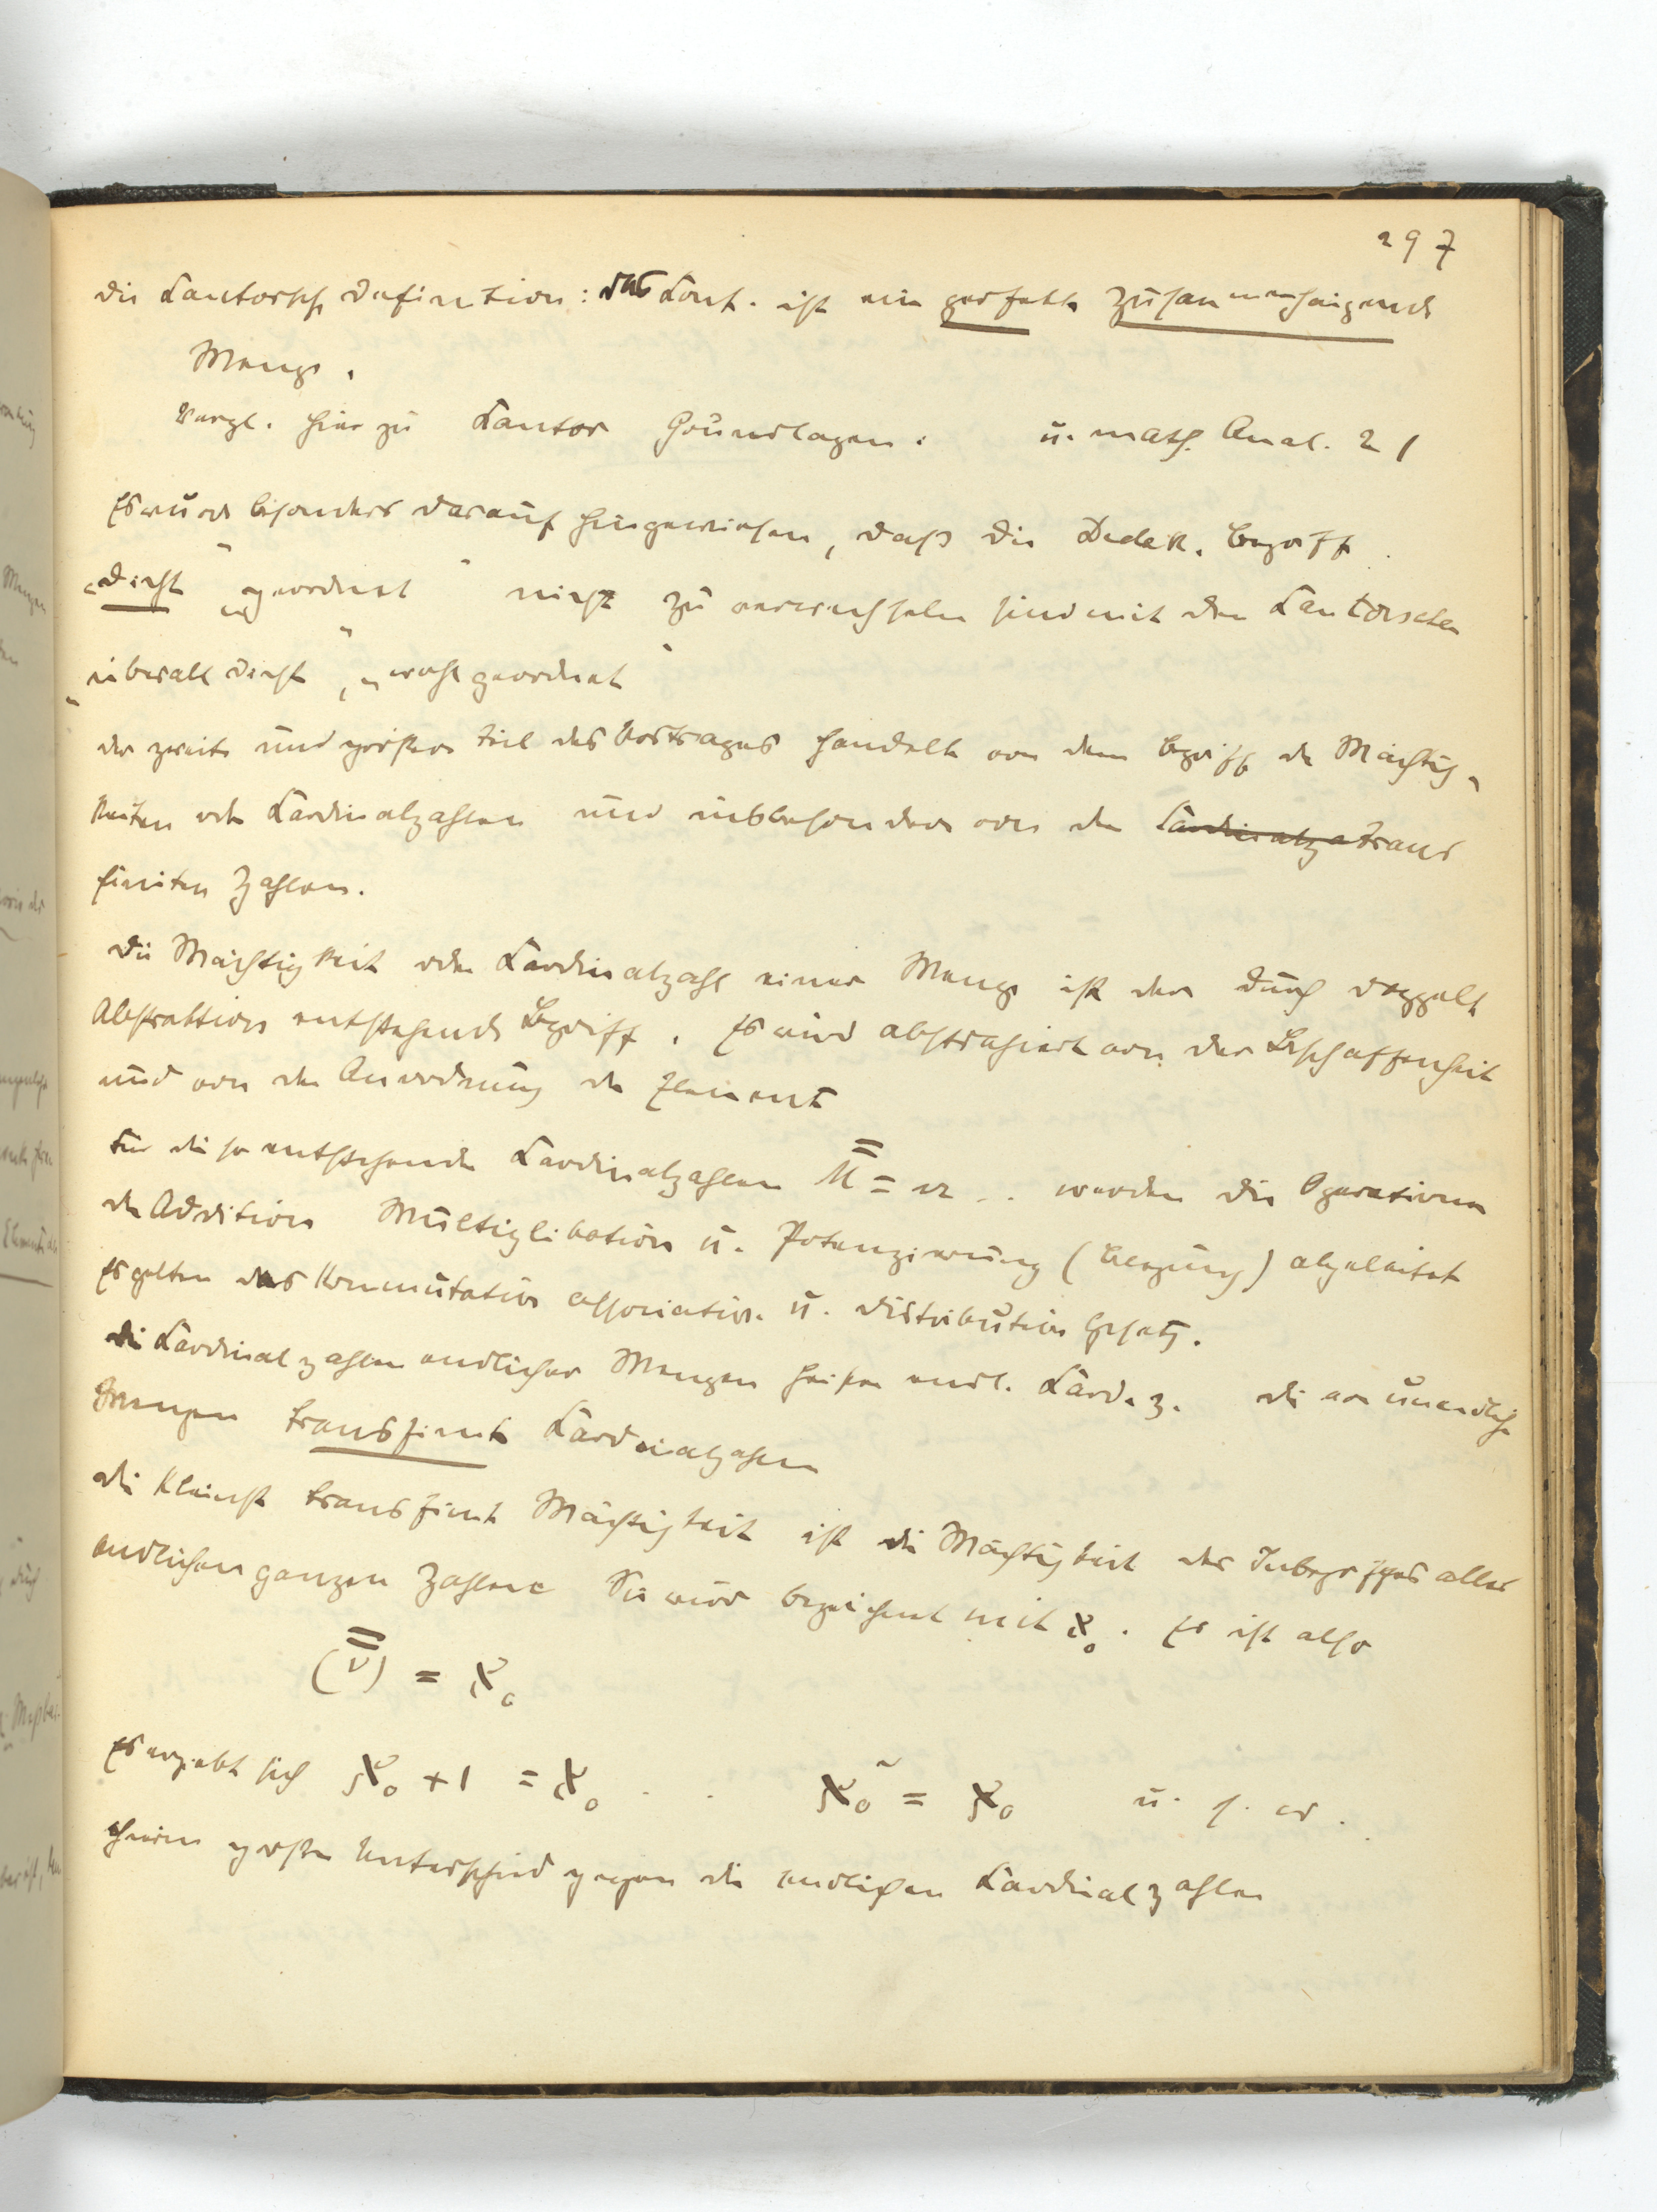 297
die Cantorsche Definition: das Cont. ist eine perfekte zusammenhängende
Menge.
Vergl. hierzu Cantor Grundlagen. u. math. Anal. 21
Es wurde besonders darauf hingewiesen, daß die Dedek. Begriffe
„dicht" „geordnet" nicht zu verwechseln sind mit den Cantorschen
„überall dicht", „wohlgeordnet"
der zweite und größere Teil des Vortrages handelte von dem Begriff der Mächtig-
keiten oder Cardinalzahlen und insbesondere von den Cardinalza trans
finiten Zahlen.
Die Mächtigkeit oder Cardinalzahl einer Menge ist der durch doppelte
Abstraktion entstehende Begriff. Es wird abstrahiert von der Beschaffenheit
und von der Anordnung der Elemente
Für die so entstehenden Cardinalzahlen M̿ = n .. werden die Operationen
der Addition Multiplikation u. Potenzierung (Belegung) abgeleitet
Es gelten das Kommutative associative. u. distributive Gesetz.
die Cardinalzahlen endlicher Mengen heißen endl. Card. z. die von unendlichen
Mengen transfinite Cardinalzahlen
die kleinste transfinite Mächtigkeit ist die Mächtigkeit des Inbegriffes aller
endlichen ganzen Zahlen Sie wird bezeichnet mit ℵ₀. Es ist also
(ν̿) = ℵ₀
Es ergiebt sich ℵ₀ + 1 = ℵ₀ . . ℵ₀ = ℵ₀ u. s. w.
großer Unterschied gegen die endlichen Cardinalzahlen